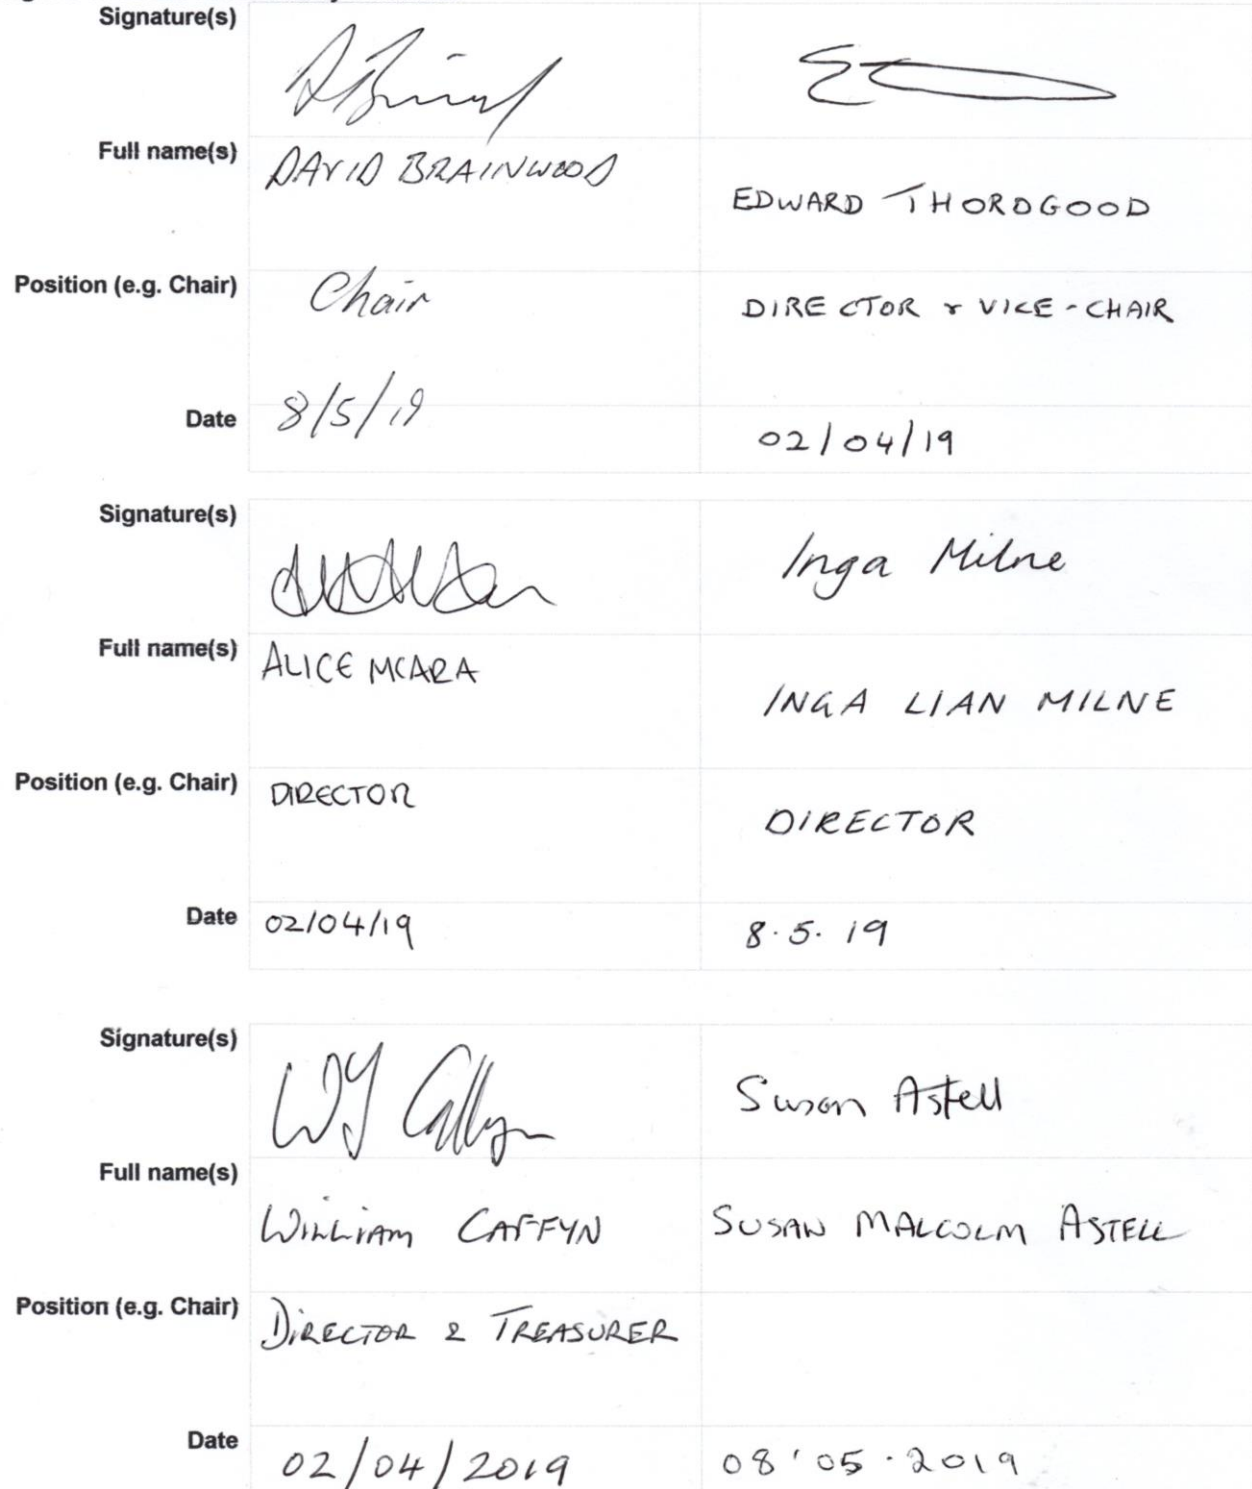 Signature(s)
Full name(s) DAVID BRAINWOOD EDWARD THOROGOOD
Position (e.g. Chair) Chair DIRECTOR & VICE-CHAIR
Date 8/5/19 02/04/19
Signature(s) Inga Milne
Full name(s) ALICE MCARA INGA LIAN MILNE
Position (e.g. Chair) DIRECTOR DIRECTOR
Date 02/04/19 8.5.19
Signature(s) WJ Caffyn Susan Astell
Full name(s) WILLIAM CAFFYN SUSAN MALCOLM ASTELL
Position (e.g. Chair) DIRECTOR & TREASURER
Date 02/04/2019 08'05.2019